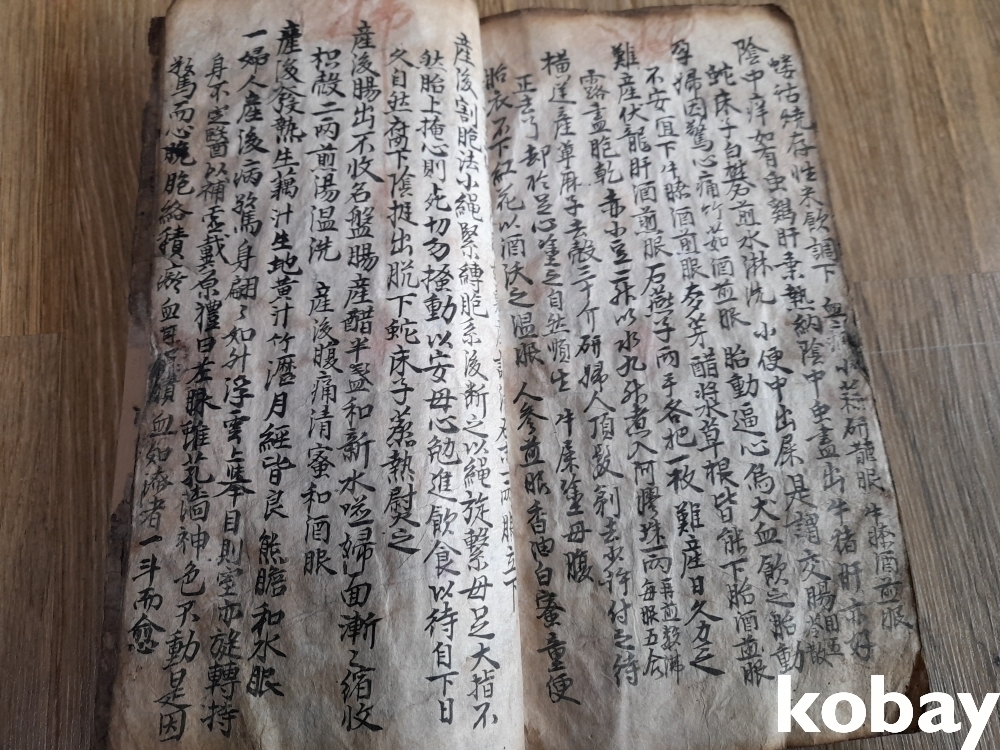 螻蛄燒存性米飮調下 血 小蒜研 服 牛膝酒煎服
陰中痒如有虫鷄肝乘熱納陰中虫盡出牛猪肝亦好
蛇床子白礬煎水淋洗 小便中出屎是謂交腸 五苓散
孕婦因驚心痛竹茹酒煎服 胎動逼心烏犬血飮之胎動
不安宜下牛膝酒煎服 麥芽醋將草根皆能下胎酒煎服
難産伏龍肝酒煎服 石燕子兩手各把一枚 難産日久力乏
露盡胞乾 赤小豆二升以水九升煮入阿膠珠一兩再煎數沸每服五合
橫逆産萆麻子去殼三十介研婦人頂髮剃去少許付之待
正去了却於足心塗之自然順生 牛屎塗母腹
胎衣不下紅花以酒沃之溫服 人參煎服香油白蜜童便
立下
産後割胞法小繩緊縛胞系後斷之以繩旋繫母足大指不
然胎上掩心則死切勿搔動以安母心勉進飮食以待自下日
久自然腐下陰挺出脫下蛇床子蒸熱熨之
産後腸出不收名盤腸産醋半盞和新水噀婦面漸〻縮收
枳殼二兩煎湯溫洗 産後腹痛淸蜜和酒服
産後發熱生藕汁生地黃汁竹瀝月經皆良 熊膽和水服
一婦人産後病驚身翩〻如升浮雲上擧目則室亦旋轉持
身不定醫以補虛 冀原禮曰左脈雖芤澁神色不動是因
驚而心 胞絡積瘀血 血如 者一斗而愈
kobay